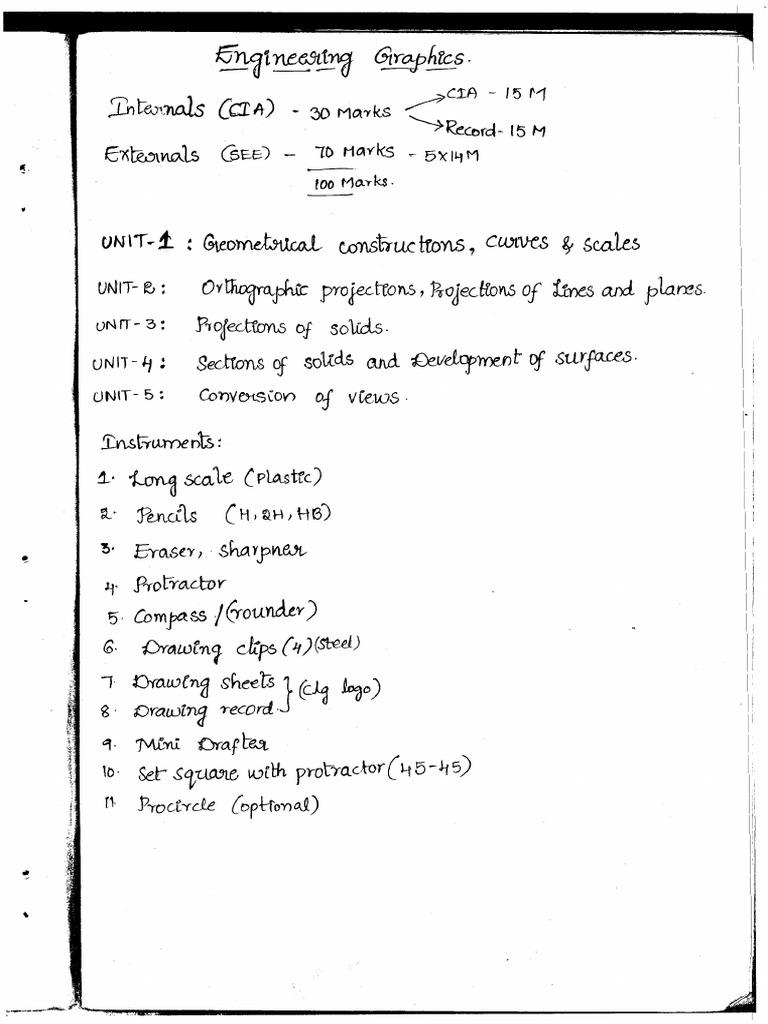 Engineering Graphics.
Internals (CIA) - 30 Marks
CIA - 15 M
Record - 15 M
Externals (SEE) - 70 Marks - 5x14M
100 Marks.
UNIT-1 : Geometrical constructions, curves & scales
UNIT-2 : Orthographic projections, Projections of Lines and planes.
UNIT-3 : Projections of solids.
UNIT-4 : Sections of solids and Development of surfaces.
UNIT-5 : Conversion of views.
Instruments:
1. Long scale (Plastic)
2. Pencils (H, 2H, HB)
3. Eraser, sharpner
4. Protractor
5. Compass / (rounder)
6. Drawing clips (4) (steel)
7. Drawing sheets
8. Drawing record. } (clg logo)
9. Mini Drafter
10. Set square with protractor (45-45)
11. Procircle (optional)